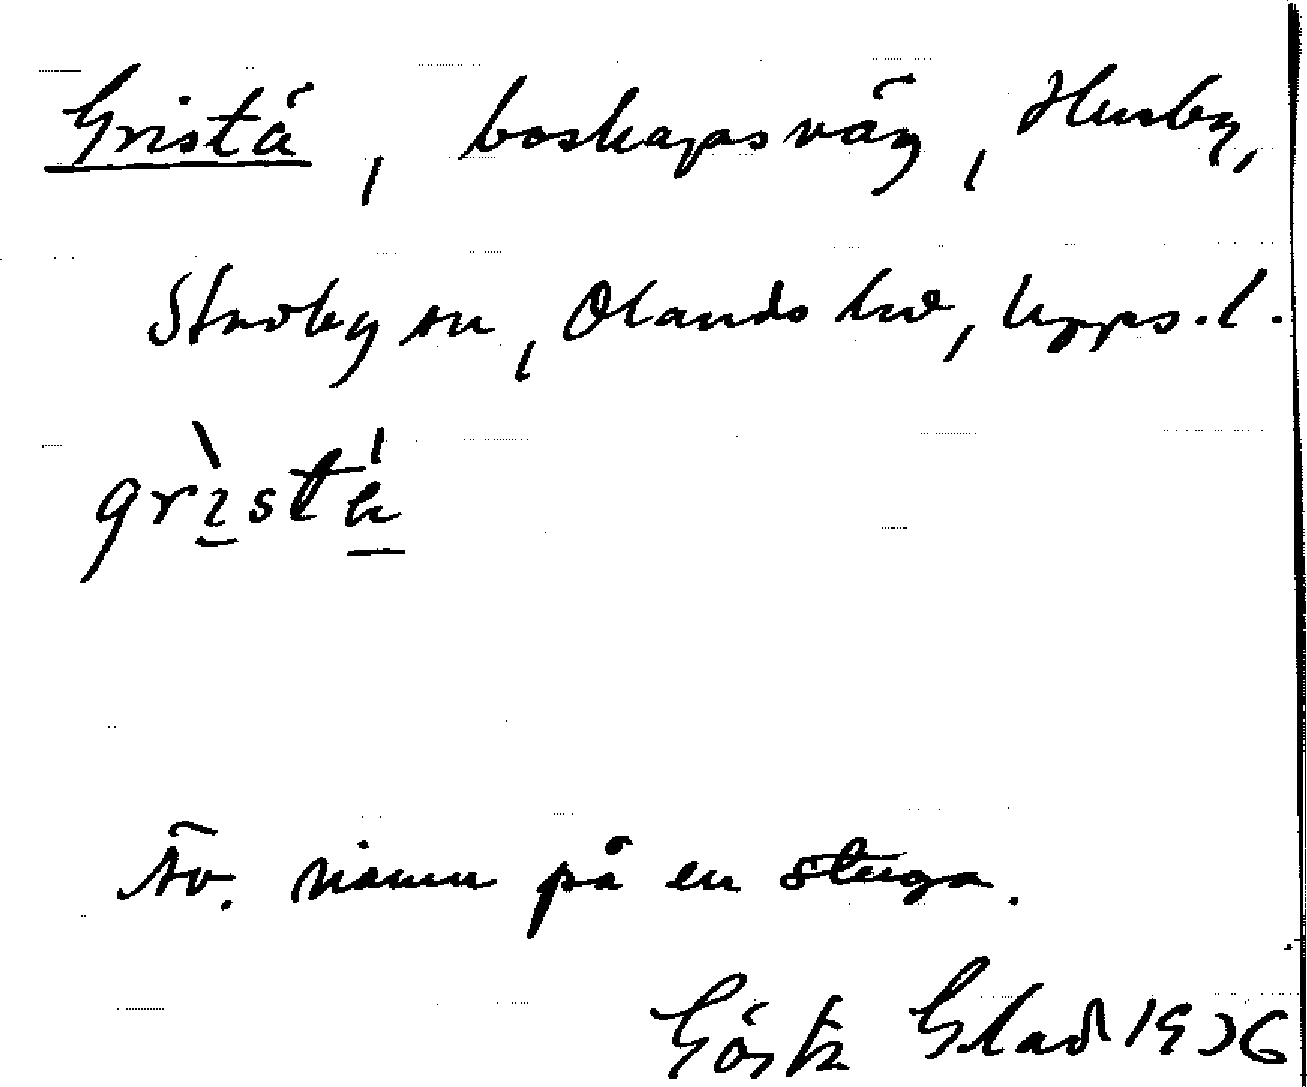 Gristå, boskapsväg, Husby,
Stavby sn, Olands hd, Upps. l.
Äv. namn på en stuga.
Gösta Glad 1936